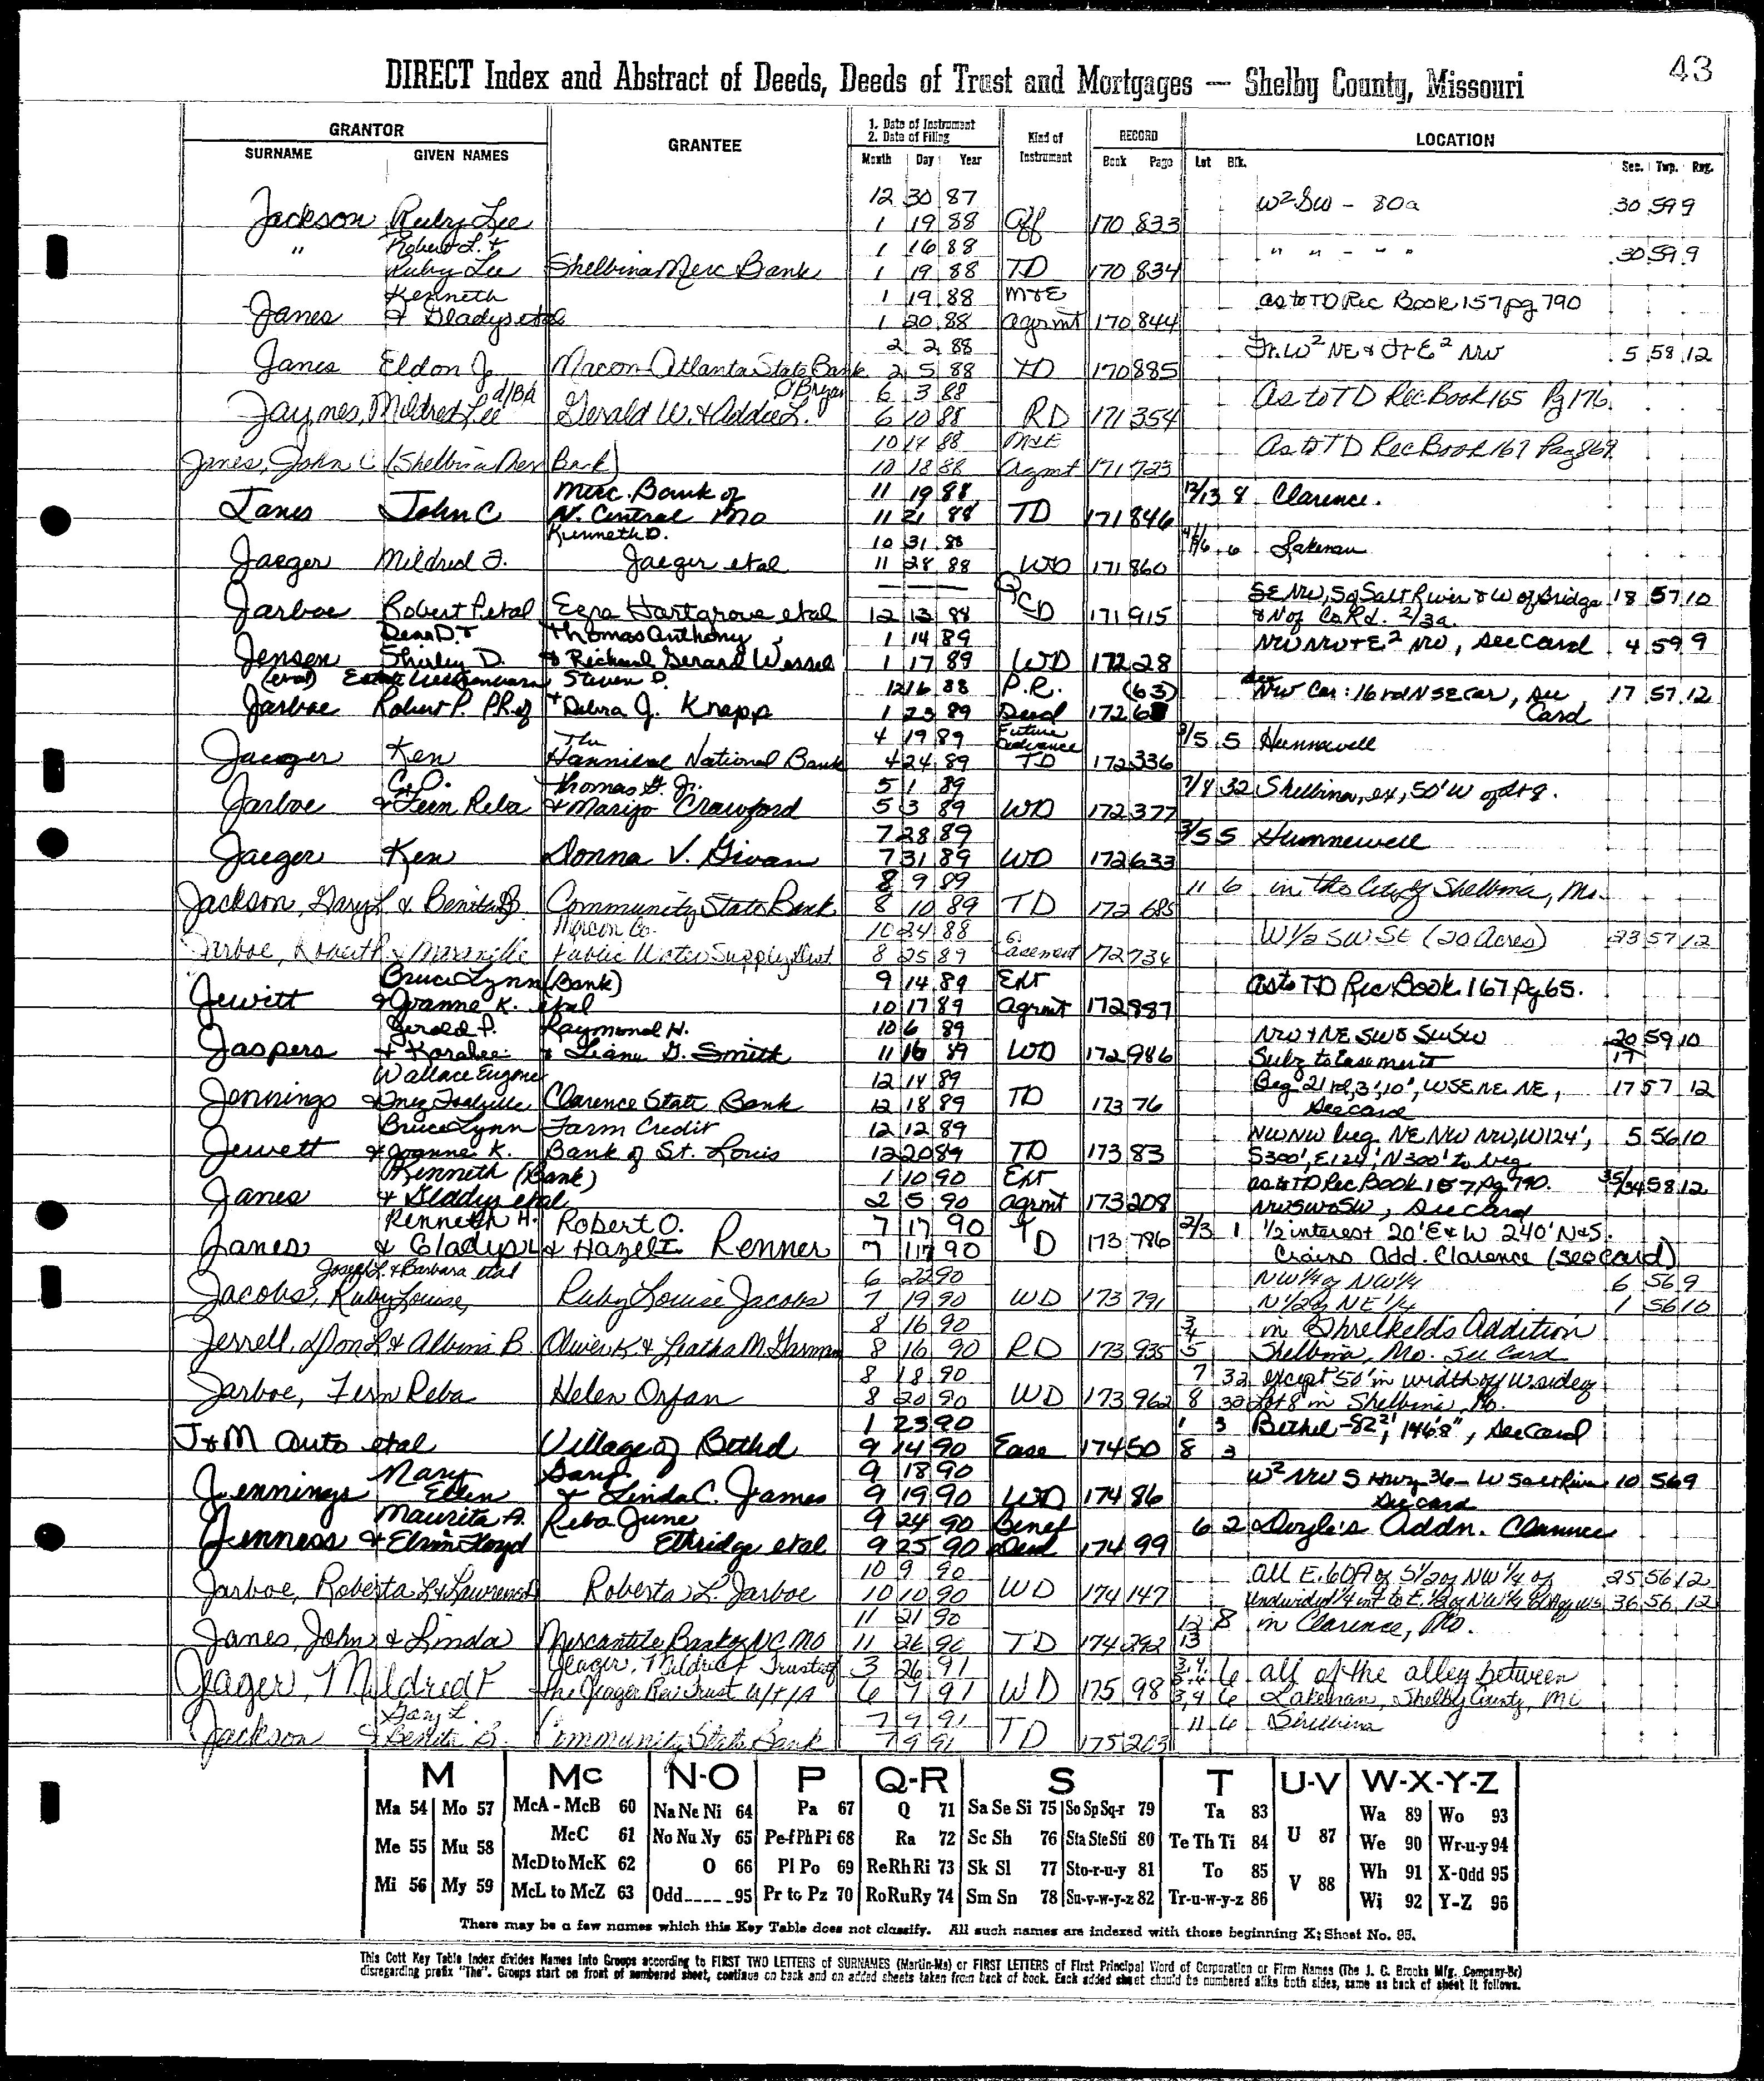 43
DIRECT Index and Abstract of Deeds, Deeds of Trust and Mortgages — Shelby County, Missouri
GRANTOR
SURNAME GIVEN NAMES
GRANTEE
1. Date of Instrument
2. Date of Filing
Month Day Year
Kind of Instrument
RECORD
Book Page
LOCATION
Lot Blk.
Sec. Twp. Rng.
12 30 87 W² SW - 80a 30 59 9
Jackson Ruby Lee 1 19 88 Aff 170 833
" Robert L. & 1 16 88 " " - " " 30 59 9
Ruby Lee Shelbina Merc Bank 1 19 88 TD 170 834
Kenneth 1 19 88 M&E as to TD Rec Book 157 pg 790
Janes & Gladys etal 1 20 88 agrmt 170 844
2 2 88 Fr. W² NE & Fr E² NW 5 58 12
Janes Eldon J. Macon-Atlanta State Bank 2 5 88 TD 170 885
d/b/a O'Bryan 6 3 88 As to TD Rec Book 165 Pg 176
Jaynes, Mildred Lee Gerald W. & Addie L. 6 10 88 RD 171 354
10 14 88 M&E As to TD Rec Book 167 Pag 869
Janes, John C (Shelbina Mer Bank) 10 18 88 Agmt 171 723
Merc. Bank of 11 19 88 12/13 8 Clarence.
Janes John C N. Central Mo 11 21 88 TD 171 846
Kenneth D. 10 31 88 6 Lakenan
Jaeger Mildred F. Jaeger etal 11 28 88 WD 171 860
SE NW, S of Salt River & W of Bridge 18 57 10
Jarboe Robert P etal Ezra Hartgrove etal 12 13 88 QCD 171 915 & N of Co Rd. 2/3a.
Dean D. & Thomas Anthony 1 14 89 NW NW & E² NW, See Card 4 59 9
Jensen Shirley D. & Richard Gerard Wessel 1 17 89 WD 172 28
(etal) Estate Steven P. 12 16 88 P.R. (63) NW Cor: 16 rd N SE cor, See 17 57 12
Jarboe Robert P. PR of & Debra J. Knapp 1 23 89 Deed 172 63 Card
The 4 19 89 Future Advance 5 5 Hunnewell
Jaeger Ken Hannibal National Bank 4 24 89 TD 172 336
C.O. Thomas G. Jr. 5 1 89 7/8 32 Shelbina, ex, 50' W of Lt 8.
Jarboe & Fern Reba & Marijo Crawford 5 3 89 WD 172 377
7 28 89 5 5 Hunnewell
Jaeger Ken Donna V. Givan 7 31 89 WD 172 633
8 9 89 11 6 in the City of Shelbina, Mo.
Jackson, Gary L & Benita B. Community State Bank 8 10 89 TD 172 685
Macon Co. 10 24 88 W 1/2 SW SE (20 Acres) 23 57 12
Jarboe, Robert P. & Public Water Supply Dist 8 25 89 Easement 172 734
Bruce Lynn (Bank) 9 14 89 Ext as to TD Rec Book 167 pg 65.
Jewitt & Joanne K. etal 10 17 89 agrmt 172 887
Gerald P. Raymond H. 10 6 89 NW & NE SW & SW SW 20 59 10
Jaspers & Karalee & Liane G. Smith 11 16 89 WD 172 986 Subj to Easement 17
Wallace Eugene 12 14 89 Beg 21 rd, 3', 10', W SE NE NE, 17 57 12
Jennings & Inez Clarence State Bank 12 18 89 TD 173 76 See card
Bruce Lynn Farm Credit 12 12 89 NW NW beg NE NW NW, W124', 5 56 10
Jewett & Joanne K. Bank of St. Louis 12 20 89 TD 173 83 S300', E124', N300' to beg
Kenneth (Bank) 1 10 90 Ext as to TD Rec Book 157 Pg 790. 35/34 58 12
Janes & Gladys etal 2 5 90 agrmt 173 208 NW SW & SW, See Card
Kenneth H. Robert O. 7 17 90 2/3 1 1/2 interest 20' E & W 240' N&S.
Janes & Gladys L & Hazel I. Renner 7 17 90 TD 173 786 Crains Add. Clarence (see card)
Joseph L. & Barbara etal 6 22 90 NW 1/4 of NW 1/4 6 56 9
Jacobs, Ruby Louise, Ruby Louise Jacobs 7 19 90 WD 173 791 N 1/2 of NE 1/4 1 56 10
8 16 90 3 4 in Threlkeld's Addition
Jerrell, Don L & Albina B. Oliver K & Leatha M Garman 8 16 90 RD 173 935 5 Shelbina, Mo. See Card
8 18 90 7 32 except 50' in width off W. side of
Jarboe, Fern Reba Helen Orfan 8 20 90 WD 173 962 8 32 Lot 8 in Shelbina, Mo.
1 23 90 1 3 Bethel - 82 2', 146'8", See Card
J & M Auto etal Village of Bethel 9 14 90 Ease 174 50 8 3
Mary Gary 9 18 90 W² NW S Hwy 36 - W Salt River 10 56 9
Jennings Ellen & Linda C. James 9 19 90 WD 174 86 See card
Maurita A. Reba June 9 24 90 Benef 6 2 Doyle's Addn. Clarence
Jenness & Elvin Floyd Ethridge etal 9 25 90 Deed 174 99
10 9 90 all E. 60A of S 1/2 of NW 1/4 of 25 56 12
Jarboe, Roberta L & Lawrence Roberta L. Jarboe 10 10 90 WD 174 147 Undivided 1/4 int to E. 1/2 of NW 1/4 36 56 12
11 21 90 12 8 in Clarence, Mo.
Janes, John & Linda Mercantile Bank of N C MO 11 26 90 TD 174 292 13
Jeager, Mildred F Trustee of 3 26 91 6 all of the alley between
Jeager, Mildred F the Jeager Rev Trust U/T/A 6 7 91 WD 175 98 3,4 6 Lakenan, Shelby County, Mo
Gary L. 7 9 91 11 6 Shelbina
Jackson & Benita B. Community State Bank 7 9 91 TD 175 203
M Mc N-O P Q-R S T U-V W-X-Y-Z
Ma 54 Mo 57 McA - McB 60 Na Ne Ni 64 Pa 67 Q 71 Sa Se Si 75 So Sp Sq-r 79 Ta 83 U 87 Wa 89 Wo 93
Me 55 Mu 58 McC 61 No Nu Ny 65 Pe-f Ph Pi 68 Ra 72 Sc Sh 76 Sta Ste Sti 80 Te Th Ti 84 We 90 Wr-u-y 94
McD to McK 62 O 66 Pl Po 69 Re Rh Ri 73 Sk Sl 77 Sto-r-u-y 81 To 85 V 88 Wh 91 X-Odd 95
Mi 56 My 59 McL to McZ 63 Odd-----95 Pr to Pz 70 Ro Ru Ry 74 Sm Sn 78 Su-v-w-y-z 82 Tr-u-w-y-z 86 Wi 92 Y-Z 96
There may be a few names which this Key Table does not classify. All such names are indexed with those beginning X; Sheet No. 95.
This Cott Key Table Index divides Names Into Groups according to FIRST TWO LETTERS of SURNAMES (Martin-Ma) or FIRST LETTERS of First Principal Word of Corporation or Firm Names (The J. C. Brooks Mfg. Company-Br)
disregarding prefix "The". Groups start on front of numbered sheet, continue on back and on added sheets taken from back of book. Each added sheet should be numbered alike both sides, same as back of sheet it follows.